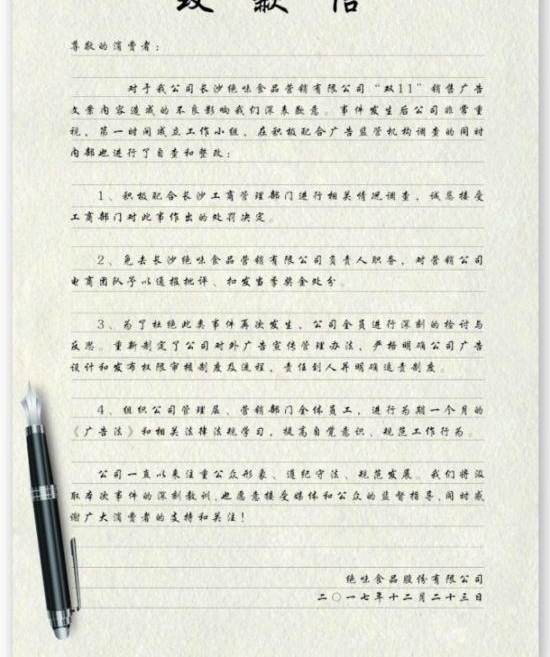 致歉信
尊敬的消费者：
对于我公司长沙绝味食品营销有限公司“双11”销售广告
文案内容造成的不良影响我们深表歉意。事件发生后公司非常重
视，第一时间成立工作小组，在积极配合广告监管机构调查的同时
内部也进行了自查和整改：
1、积极配合长沙工商管理部门进行相关情况调查，诚恳接受
工商部门对此事作出的处罚决定。
2、免去长沙绝味食品营销有限公司负责人职务，对营销公司
电商团队予以通报批评、扣发当季奖金处分。
3、为了杜绝此类事件再次发生，公司全员进行深刻的检讨与
反思。重新制定了公司对外广告宣传管理办法，严格明确公司广告
设计和发布权限审核制度及流程，责任到人并明确追责制度。
4、组织公司管理层、营销部门全体员工，进行为期一个月的
《广告法》和相关法律法规学习，提高自觉意识、规范工作行为。
公司一直以来注重公众形象、遵纪守法、规范发展。我们将汲
取本次事件的深刻教训，也愿意接受媒体和公众的监督指导，同时感
谢广大消费者的支持和关注！
绝味食品股份有限公司
二〇一七年十二月二十三日